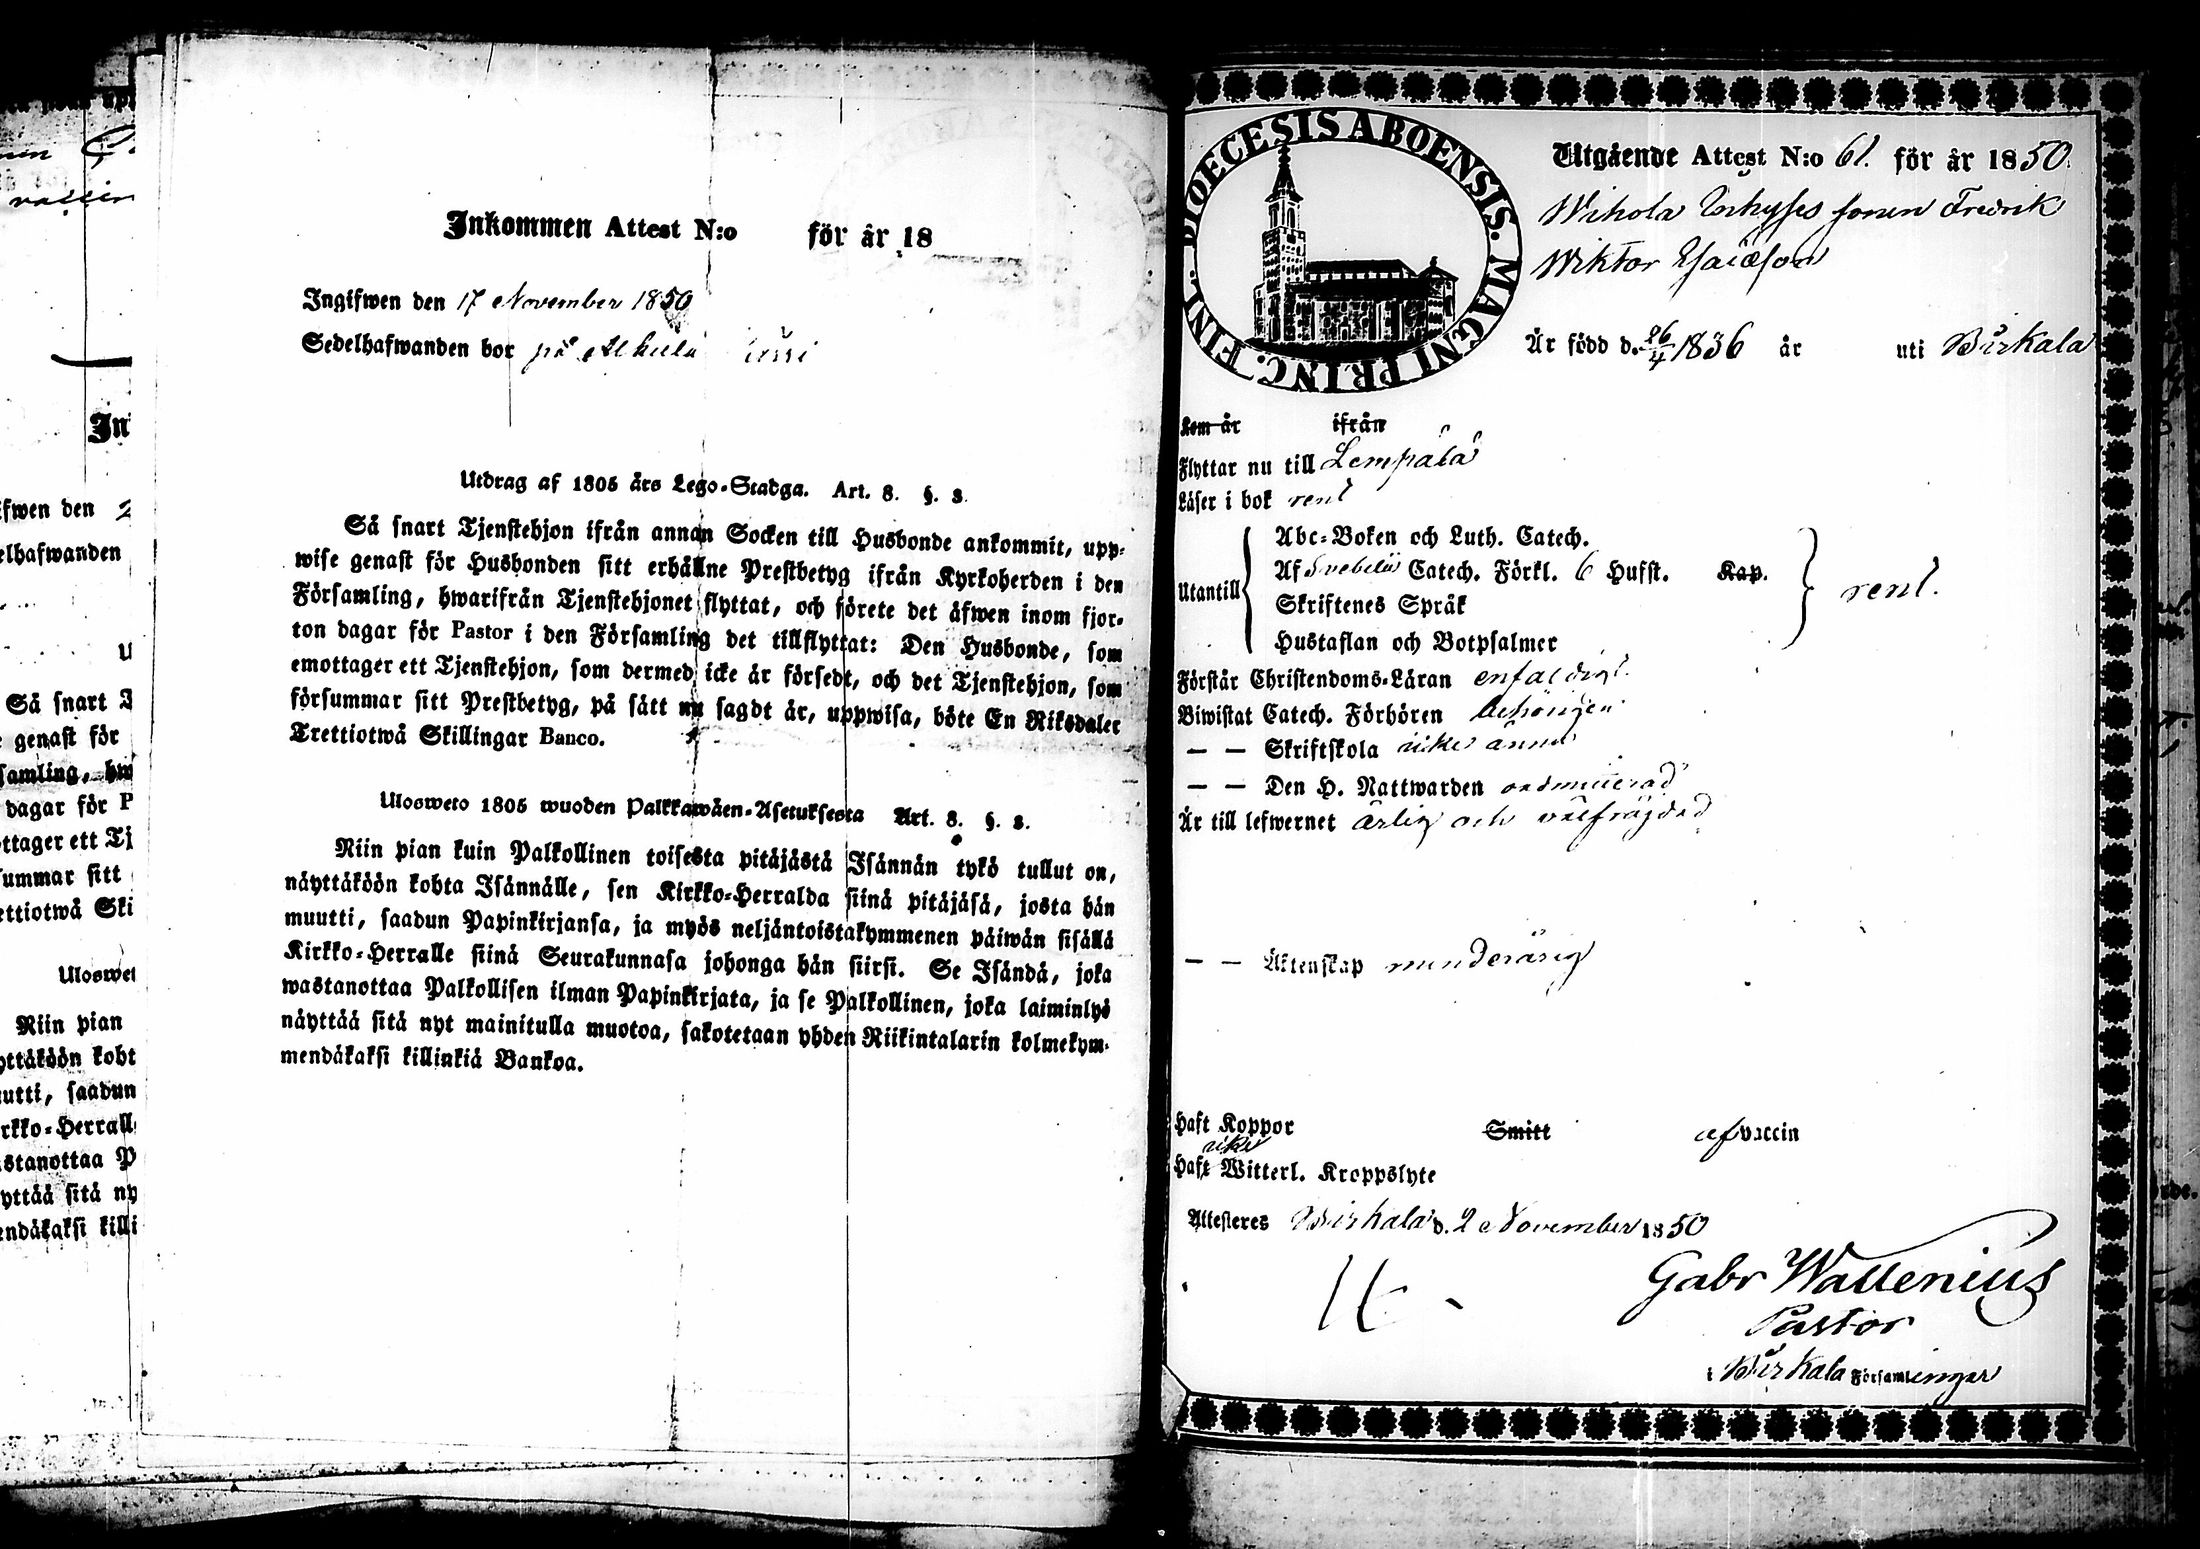 Inkommen Attest N:o för år 18
Ingifwen den 17 November 1850
Sedelhafwanden bor på
Utdrag af 1805 års Lego-Stadga. Art. 8. §. 3.
Så snart Tjenstehjon ifrån annan Socken till Husbonde ankommit, upp-
wise genast för Husbonden sitt erhållne Prestbetyg ifrån Kyrkoherden i den
Församling, hwarifrån Tjenstehjonet flyttat, och förete det äfwen inom fjor-
ton dagar för Pastor i den Församling det tillflyttat: Den Husbonde, som
emottager ett Tjenstehjon, som dermed icke är försedt, och det Tjenstehjon, som
försummar sitt Prestbetyg, på sätt nu sagdt är, uppwisa, böte En Riksdaler
Trettiotwå Skillingar Banco.
Ulosweto 1805 wuoden Palkkawäen-Asetuksesta Art. 8. §. 3.
Niin pian kuin Palkollinen toisesta pitäjästä Isännän tykö tullut on,
näyttäköön kohta Isännälle, sen Kirkko-Herralda siinä pitäjäsä, josta hän
muutti, saadun Papinkirjansa, ja myös neljäntoistakymmenen päiwän sisällä
Kirkko-Herralle siinä Seurakunnasa johonga hän siirsi. Se Isändä, joka
wastanottaa Palkollisen ilman Papinkirjata, ja se Palkollinen, joka laiminlyö
näyttää sitä nyt mainitulla muotoa, sakotetaan yhden Riikintalarin kolmekym-
mendäkaksi killinkiä Bankoa.
DIOECESIS ABOENSIS. MAGNI PRINC. FINL.
Utgående Attest N:o 61. för år 1850.
sonen Fredrik
Wiktor Esaiæson
Är född d. 26/4 1836 år uti Birkala
Kom år ifrån
Flyttar nu till Lempälä
Läser i bok rent
Abc-Boken och Luth. Catech.
Utantill Af Svebelii Catech. Förkl. 6 Hufst. Kap. rent.
Skriftenes Språk
Hustaflan och Botpsalmer
Förstår Christendoms-Läran enfaldigt
Biwistat Catech. Förhören behörigen
— — Skriftskola icke ännu
— — Den H. Nattwarden oadmitterad
Är till lefwernet ärlig och välfräjdad
— — Äktenskap minderårig
Haft Koppor Smitt af vaccin
icke
Haft Witterl. Kroppslyte
Attesteres Birkala d. 2 November 1850
Gabr Wallenius
Pastor
i Birkala Församlingar